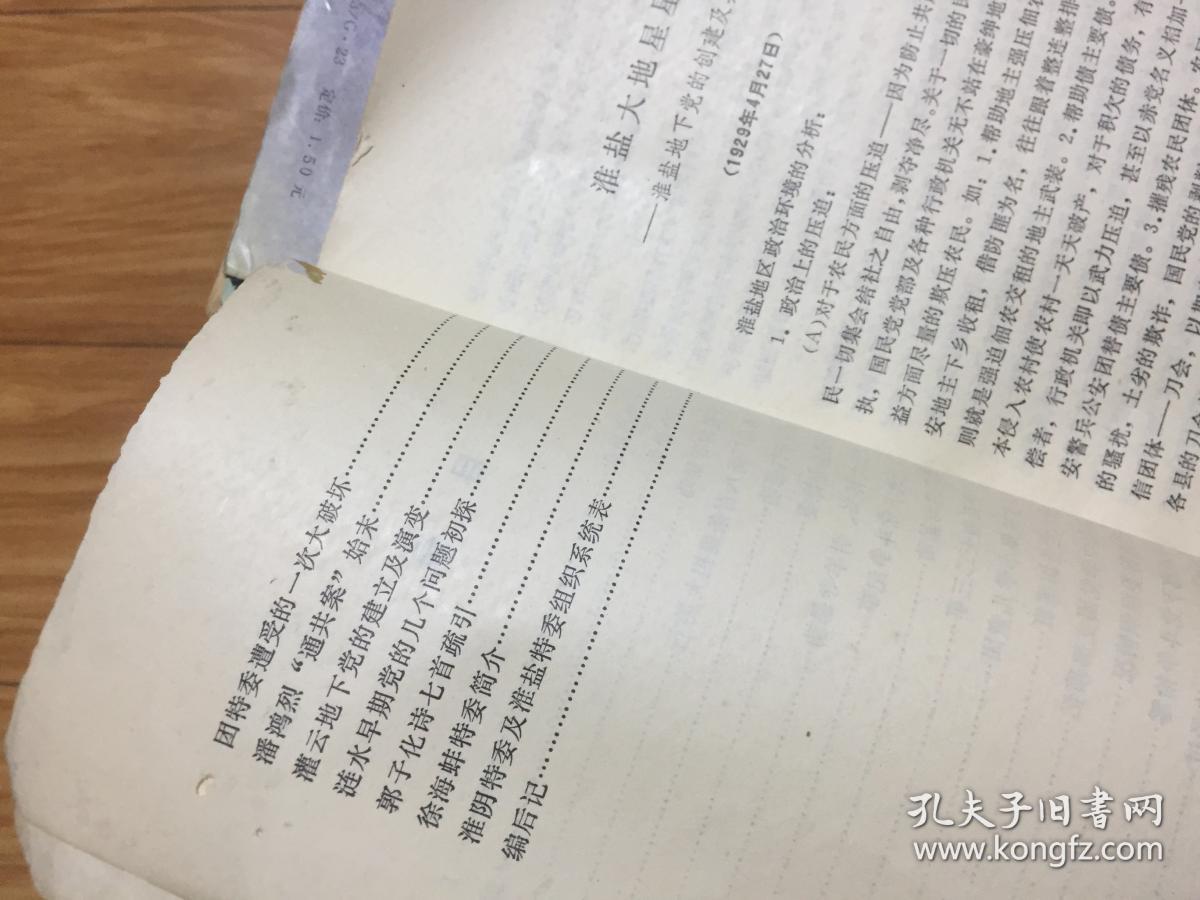 团特委遭受的一次大破坏
潘鸿烈“通共案”始末
灌云地下党的建立及演变
涟水早期党的几个问题初探
郭子化诗七首疏引
徐海蚌特委简介
淮阴特委及淮盐特委组织系统表
编后记
定价：1.50元
淮盐大地星星
——淮盐地下党的创建及
(1929年4月27日)
淮盐地区政治环境的分析：
1．政治上的压迫：
(A)对于农民方面的压迫——因为防止共
民一切集会结社之自由，剥夺净尽。关于一切的
执，国民党党部及各种行政机关无不站在豪绅地
益方面尽量的欺压农民。如：1．帮助地主强压佃
安地主下乡收租，借防匪为名，往往跟着整连整排
则就是强迫佃农交租的地主武装。2．帮助债主要债。
本侵入农村使农村一天天破产，对于积欠的债务，有
偿者，行政机关即以武力压迫，甚至以赤党名义相加
安警兵公安团替债主要债。3．摧残农民团体。
的骚扰，土劣的欺诈，国民党的
信团体——刀会，
各县的刀
孔夫子旧书网
www.kongfz.com